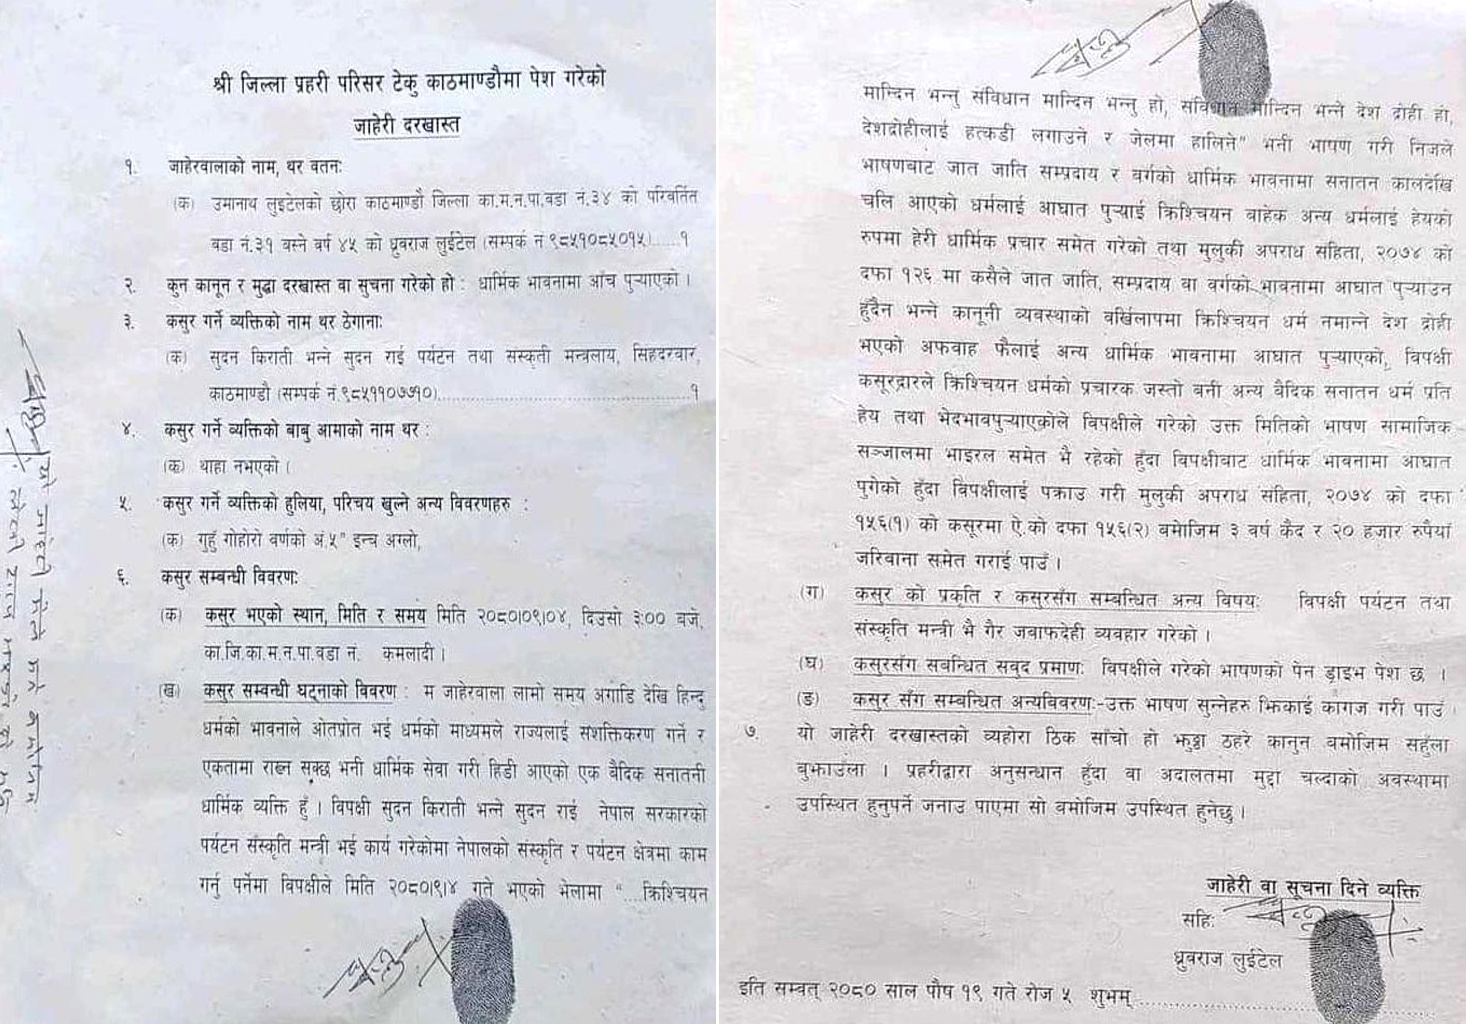 श्री जिल्ला प्रहरी परिसर टेकु काठमाण्डौमा पेश गरेको
जाहेरी दरखास्त
१. जाहेरवालाको नाम, थर वतनः
(क) उमानाथ लुइटेलको छोरा काठमाण्डौ जिल्ला का.म.न.पा.वडा नं.३४ को परिवर्तित
वडा नं.३१ बस्ने वर्ष ४५ को ध्रुवराज लुईटेल (सम्पर्क नं ९८५१०८५०१५)......१
२. कुन कानून र मुद्धा दरखास्त वा सुचना गरेको हो : धार्मिक भावनामा आँच पुऱ्याएको ।
३. कसुर गर्ने व्यक्तिको नाम थर ठेगानाः
(क) सुदन किराती भन्ने सुदन राई पर्यटन तथा संस्कृती मन्त्रलाय, सिंहदरवार,
काठमाण्डौ (सम्पर्क नं.९८५११०७७१०)..........................................१
४. कसुर गर्ने व्यक्तिको बाबु आमाको नाम थर :
(क) थाहा नभएको ।
५. कसुर गर्ने व्यक्तिको हुलिया, परिचय खुल्ने अन्य विवरणहरु :
(क) गुहुँ गोहोरो वर्णको अं.५" इन्च अग्लो,
६. कसुर सम्बन्धी विवरणः
(क) कसुर भएको स्थान, मिति र समय मिति २०८०।०९।०४, दिउसो ३:०० बजे,
का.जि.का.म.न.पा.वडा नं. कमलादी ।
(ख) कसुर सम्बन्धी घट्नाको विवरण : म जाहेरवाला लामो समय अगाडि देखि हिन्दु
धर्मको भावनाले ओतप्रोत भई धर्मको माध्यमले राज्यलाई सशक्तिकरण गर्ने र
एकतामा राख्न सक्छ भनी धार्मिक सेवा गरी हिडी आएको एक वैदिक सनातनी
धार्मिक व्यक्ति हुँ । विपक्षी सुदन किराती भन्ने सुदन राई नेपाल सरकारको
पर्यटन संस्कृति मन्त्री भई कार्य गरेकोमा नेपालको संस्कृति र पर्यटन क्षेत्रमा काम
गर्नु पर्नेमा विपक्षीले मिति २०८०।९।४ गते भएको भेलामा "....क्रिश्चियन
मान्दिन भन्नु संविधान मान्दिन भन्नु हो, संविधान मान्दिन भन्ने देश द्रोही हो,
देशद्रोहीलाई हत्कडी लगाउने र जेलमा हालिने" भनी भाषण गरी निजले
भाषणबाट जात जाति सम्प्रदाय र वर्गको धार्मिक भावनामा सनातन कालदेखि
चलि आएको धर्मलाई आघात पुऱ्याई क्रिश्चियन बाहेक अन्य धर्मलाई हेयको
रुपमा हेरी धार्मिक प्रचार समेत गरेको तथा मुलुकी अपराध संहिता, २०७४ को
दफा १२६ मा कसैले जात जाति, सम्प्रदाय वा वर्गको भावनामा आघात पुऱ्याउन
हुँदैन भन्ने कानूनी व्यवस्थाको वर्खिलापमा क्रिश्चियन धर्म नमान्ने देश द्रोही
भएको अफवाह फैलाई अन्य धार्मिक भावनामा आघात पुऱ्याएको, विपक्षी
कसूरद्वारले क्रिश्चियन धर्मको प्रचारक जस्तो बनी अन्य वैदिक सनातन धर्म प्रति
हेय तथा भेदभावपुऱ्याएकोले विपक्षीले गरेको उक्त मितिको भाषण सामाजिक
सञ्जालमा भाइरल समेत भै रहेको हुँदा विपक्षीबाट धार्मिक भावनामा आघात
पुगेको हुँदा विपक्षीलाई पक्राउ गरी मुलुकी अपराध संहिता, २०७४ को दफा
१५६(१) को कसूरमा ऐ.को दफा १५६(२) बमोजिम ३ वर्ष कैद र २० हजार रुपैयां
जरिवाना समेत गराई पाउँ ।
(ग) कसुर को प्रकृति र कसुरसँग सम्बन्धित अन्य विषयः विपक्षी पर्यटन तथा
संस्कृति मन्त्री भै गैर जवाफदेही व्यवहार गरेको ।
(घ) कसुरसँग सबन्धित सबुद प्रमाणः विपक्षीले गरेको भाषणको पेन ड्राइभ पेश छ ।
(ङ) कसुर सँग सम्बन्धित अन्यविवरणः-उक्त भाषण सुन्नेहरु झिकाई कागज गरी पाउँ
७. यो जाहेरी दरखास्तको व्यहोरा ठिक साँचो हो झुठ्ठा ठहरे कानुन बमोजिम सहुँला
बुझाउँला । प्रहरीद्वारा अनुसन्धान हुँदा वा अदालतमा मुद्दा चल्दाको अवस्थामा
उपस्थित हुनुपर्ने जनाउ पाएमा सो बमोजिम उपस्थित हुनेछु ।
जाहेरी वा सूचना दिने व्यक्ति
सहिः
ध्रुवराज लुईटेल
इति सम्वत् २०८० साल पौष १९ गते रोज ५ शुभम्